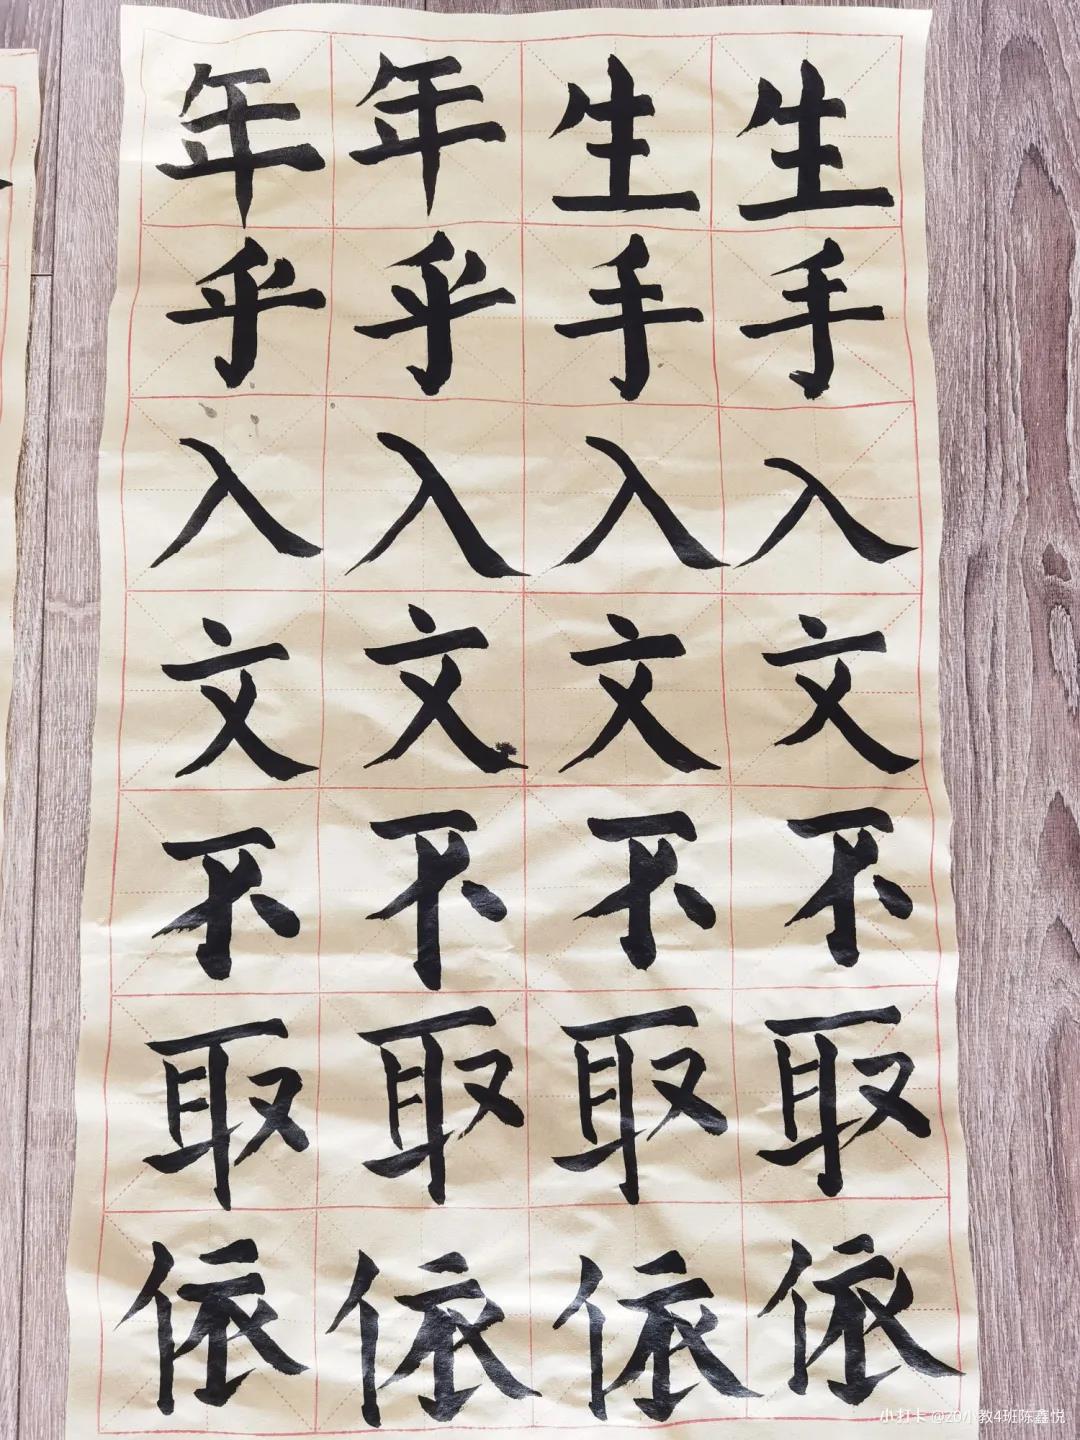 年年生生
乎乎手手
入入入入
文文文文
不不不不
取取取取
依依依依
小打卡 @20小教4班陈鑫悦